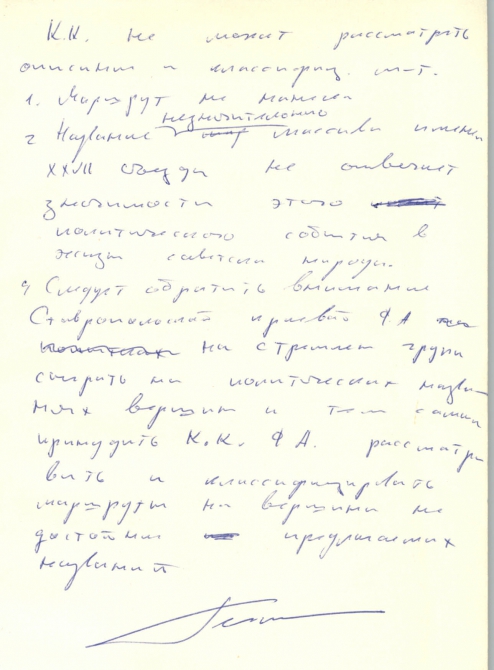 К.К. не может рассмотреть
описания и классифиц. м-т.
1. Маршрут не нанесен
незначительного
2 Название массива имени
XXVII съезда не отвечает
значимости этого
политического события в
жизни советск народа.
Следует обратить внимание
Ставропольской краевой ФА
на стремлен групп
сыграть на политических назва
ниях вершин и тем самым
принудить К.К. ФА. рассматри
вать и классифицировать
маршруты на вершины не
достойные предлагаемых
названий